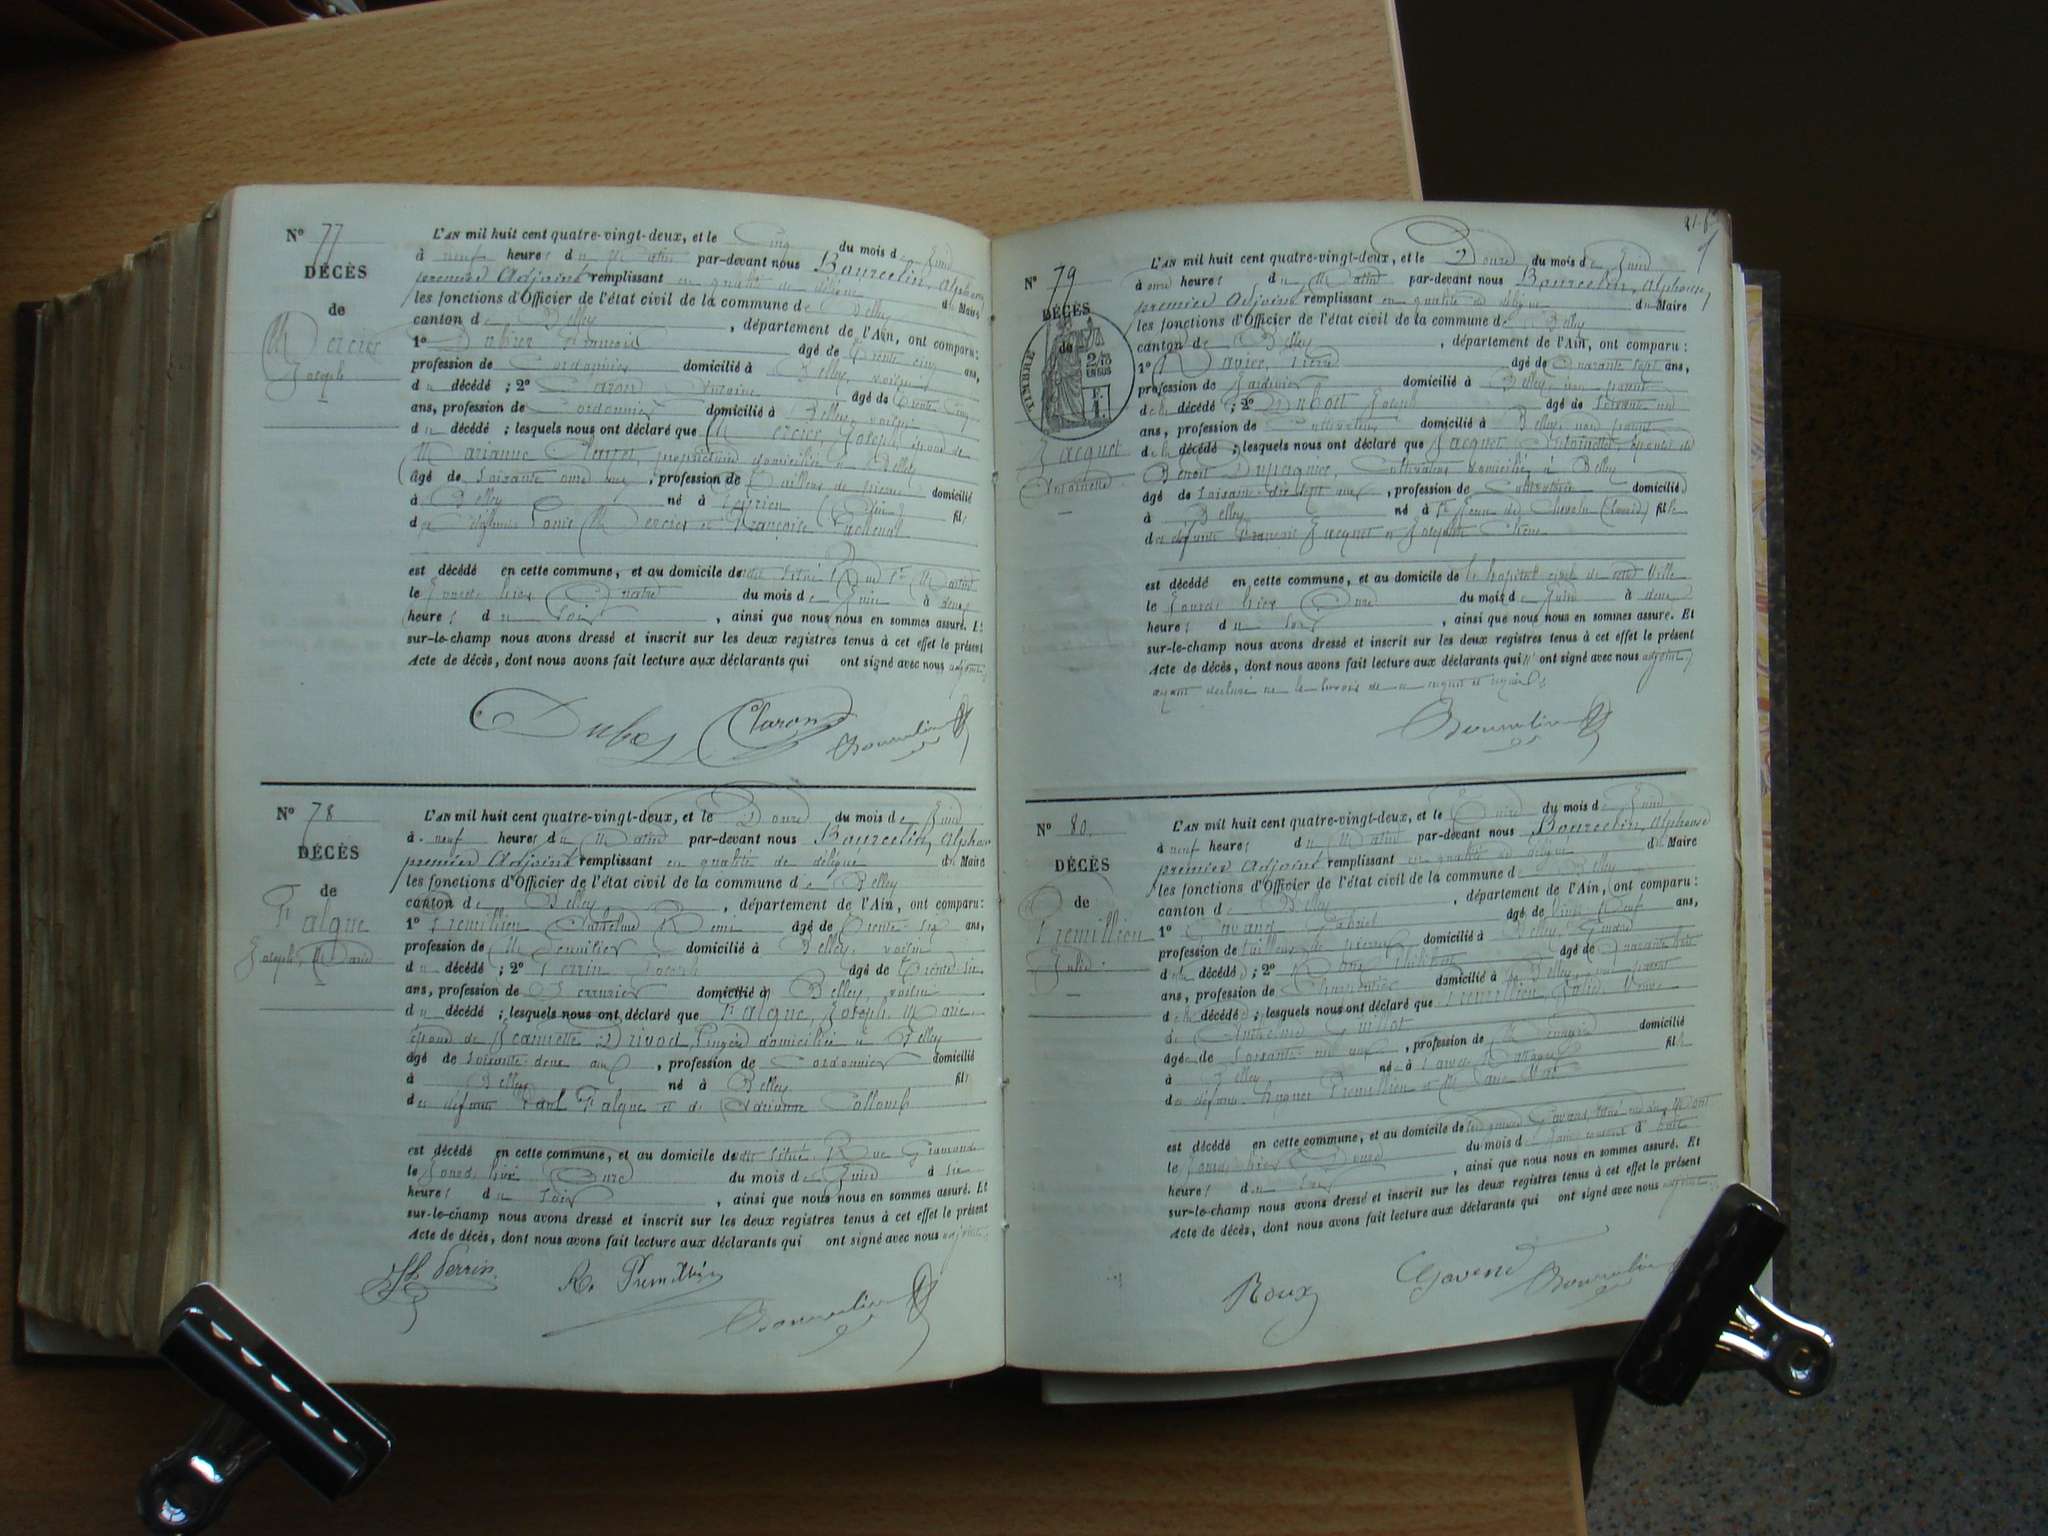 N° 77
DÉCÈS
de
Mercier
Joseph
L'AN mil huit cent quatre-vingt-deux, et le Cinq du mois de Juin
à neuf heures du Matin par-devant nous Bourcelin, Alphonse
premier Adjoint remplissant en qualité de délégué du Maire
les fonctions d'Officier de l'état civil de la commune de Belley
canton de Belley, département de l'Ain, ont comparu:
1° François âgé de trente cinq ans,
profession de Cordonnier domicilié à Belley, voisin
du décédé; 2° Antoine âgé de trente cinq
ans, profession de Cordonnier domicilié à Belley, voisin
du décédé; lesquels nous ont déclaré que Mercier, Joseph, époux de
Marianne domiciliée à Belley
âgé de soixante onze ans, profession de tailleur de pierre domicilié
à Belley né à (Ain) fils
des défunts Louis Mercier et Françoise
est décédé en cette commune, et au domicile de situé Rue St Martin
le jour d'hier quatre du mois de Juin à deux
heures du soir, ainsi que nous nous en sommes assuré. Et
sur-le-champ nous avons dressé et inscrit sur les deux registres tenus à cet effet le présent
Acte de décès, dont nous avons fait lecture aux déclarants qui ont signé avec nous adjoint
N° 78
DÉCÈS
de
Falque
Joseph, Marie
L'AN mil huit cent quatre-vingt-deux, et le Douze du mois de Juin
à neuf heures du Matin par-devant nous Bourcelin, Alphonse
premier Adjoint remplissant en qualité de délégué du Maire
les fonctions d'Officier de l'état civil de la commune de Belley
canton de Belley, département de l'Ain, ont comparu:
1° Premillieu Remi âgé de trente six ans,
profession de Menuisier domicilié à Belley, voisin
du décédé; 2° Perrin Joseph âgé de trente six
ans, profession de Serrurier domicilié à Belley, voisin
du décédé; lesquels nous ont déclaré que Falque, Joseph, Marie
époux de Jeannette Drivod, Lingère domiciliée à Belley
âgé de soixante deux ans, profession de Cordonnier domicilié
à Belley né à Belley fils
des défunts Paul Falque et de Collomb
est décédé en cette commune, et au domicile de situé Rue
le jour d'hier Onze du mois de Juin à six
heures du soir, ainsi que nous nous en sommes assuré. Et
sur-le-champ nous avons dressé et inscrit sur les deux registres tenus à cet effet le présent
Acte de décès, dont nous avons fait lecture aux déclarants qui ont signé avec nous adjoint
Perrin R. Premillieu
N° 79
DÉCÈS
de
TIMBRE
2/10 EN SUS
Jacquet
Antoinette
L'AN mil huit cent quatre-vingt-deux, et le Douze du mois de Juin
à onze heures du Matin par-devant nous Bourcelin, Alphonse,
premier Adjoint remplissant en qualité de délégué du Maire
les fonctions d'Officier de l'état civil de la commune de Belley
canton de Belley, département de l'Ain, ont comparu:
1° Pierre âgé de quarante sept ans,
profession de Jardinier domicilié à Belley, non parent
de la décédée; 2° Joseph âgé de soixante
ans, profession de Cultivateur domicilié à Belley, non parent
de la décédée; lesquels nous ont déclaré que Jacquet Antoinette, épouse de
Benoit Cultivateur domicilié à Belley
âgée de soixante dix sept ans, profession de Cultivatrice domiciliée
à Belley née à St Jean de Chevelu (Savoie) fille
des défunts François Jacquet et Josephte
est décédée en cette commune, et au domicile de l'hopital civil de cette Ville
le jour d'hier Onze du mois de Juin à deux
heures du soir, ainsi que nous nous en sommes assuré. Et
sur-le-champ nous avons dressé et inscrit sur les deux registres tenus à cet effet le présent
Acte de décès, dont nous avons fait lecture aux déclarants qui n'ont signé avec nous adjoint,
ayant déclaré ne le savoir de ce requis
N° 80
DÉCÈS
de
Premillieu
Julie
L'AN mil huit cent quatre-vingt-deux, et le treize du mois de Juin
à neuf heures du Matin par-devant nous Bourcelin, Alphonse
premier Adjoint remplissant en qualité de délégué du Maire
les fonctions d'Officier de l'état civil de la commune de Belley
canton de Belley, département de l'Ain, ont comparu:
1° Gavand Gabriel âgé de vingt neuf ans,
profession de tailleur de pierre domicilié à Belley, Gendre
de la décédée; 2° Roux Philibert âgé de quarante huit
ans, profession de domicilié à Belley, non parent
de la décédée; lesquels nous ont déclaré que Premillieu, Julie, Veuve
de Anthelme
âgée de soixante ans, profession de Ménagère domiciliée
à Belley née à fille
des défunts Premillieu et
est décédée en cette commune, et au domicile de Gavand, situé rue du
le jour d'hier Douze du mois de à huit
heures du soir, ainsi que nous nous en sommes assuré. Et
sur-le-champ nous avons dressé et inscrit sur les deux registres tenus à cet effet le présent
Acte de décès, dont nous avons fait lecture aux déclarants qui ont signé avec nous adjoint
Roux Gavand